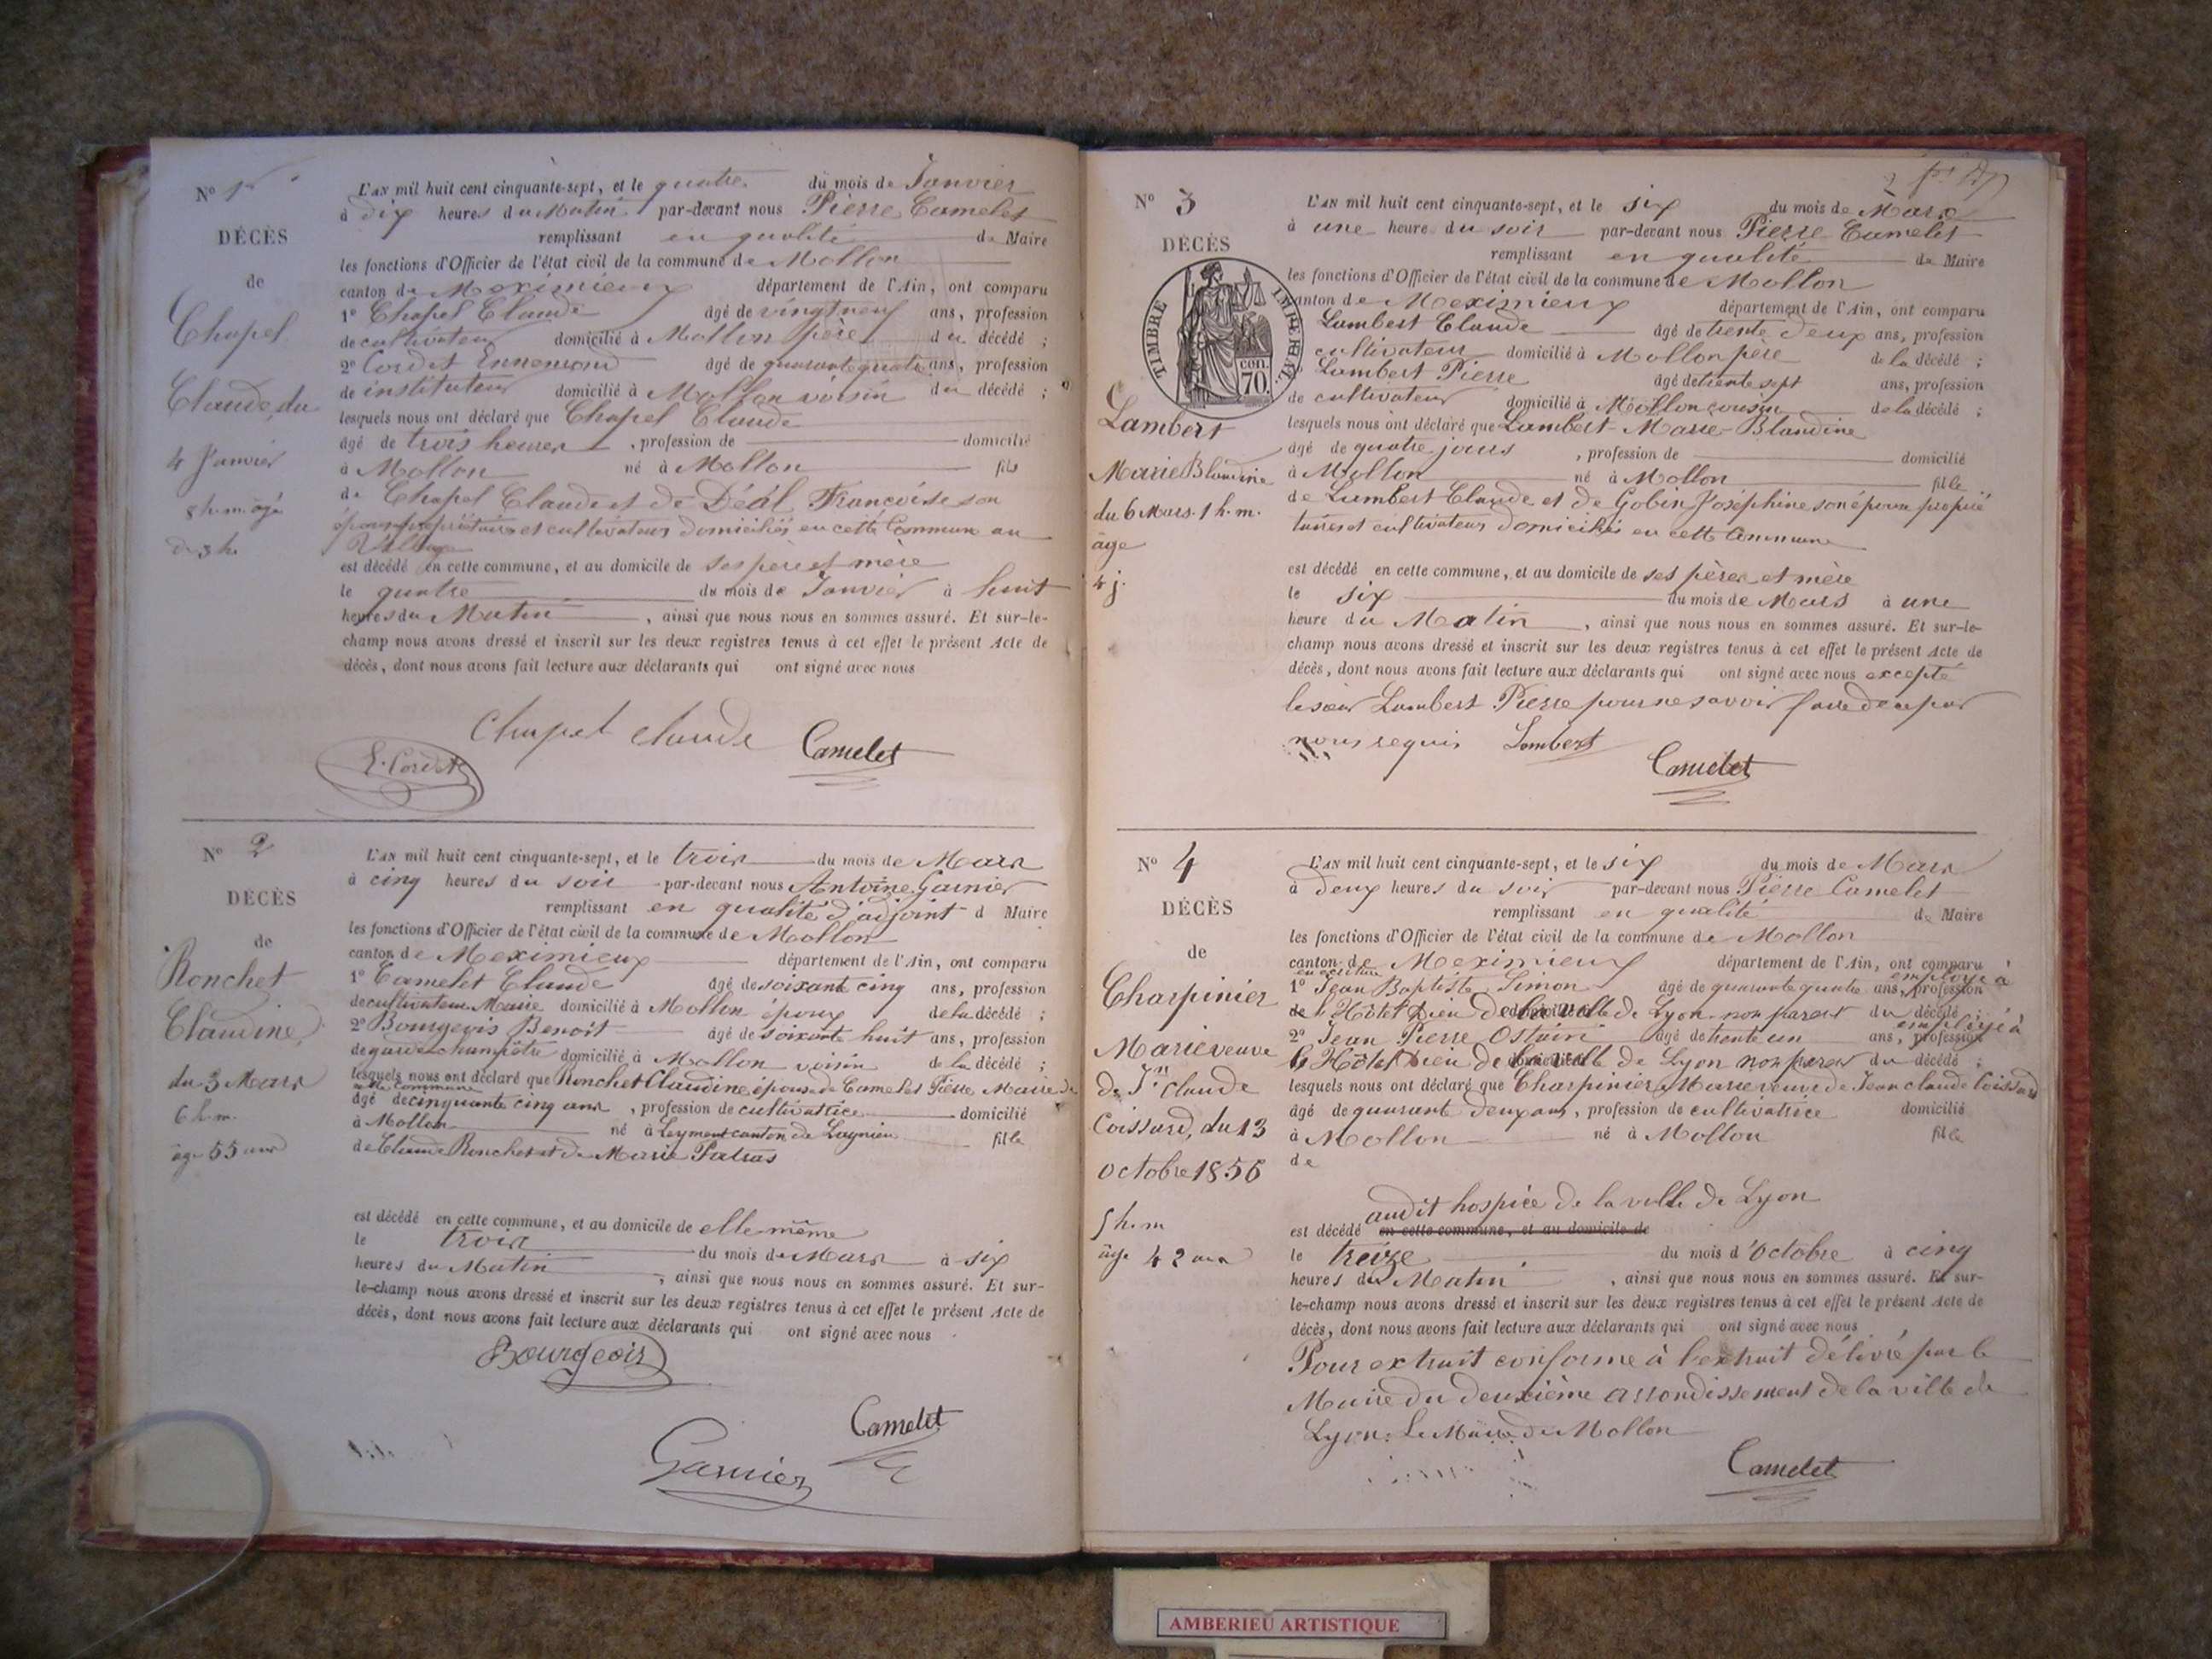 N° 1er
DÉCÈS
de
Chapel
Claude, du
4 Janvier
8 h. m. âgé
de 3 h.
L'AN mil huit cent cinquante-sept, et le quatre du mois de Janvier
à dix heures du Matin par-devant nous Pierre Camelet
remplissant en qualité de Maire
les fonctions d'Officier de l'état civil de la commune de Mollon
canton de Meximieux département de l'Ain, ont comparu
1° Chapel Claude âgé de vingt neuf ans, profession
de cultivateur domicilié à Mollon père du décédé ;
2° Cordet Ennemond âgé de quarante quatre ans, profession
de instituteur domicilié à Mollon voisin du décédé ;
lesquels nous ont déclaré que Chapel Claude
âgé de trois heures, profession de domicilié
à Mollon né à Mollon fils
de Chapel Claude et de Déal Françoise son
épouse propriétaires et cultivateurs domiciliés en cette Commune au
Village
est décédé en cette commune, et au domicile de ses père et mère
le quatre du mois de Janvier à huit
heures du Matin, ainsi que nous nous en sommes assuré. Et sur-le-
champ nous avons dressé et inscrit sur les deux registres tenus à cet effet le présent Acte de
décès, dont nous avons fait lecture aux déclarants qui ont signé avec nous
Chapel Claude Camelet
E. Cordet
N° 2
DÉCÈS
de
Ronchet
Claudine,
du 3 Mars
6 h. m.
âge 55 ans
L'AN mil huit cent cinquante-sept, et le trois du mois de Mars
à cinq heures du soir par-devant nous Antoine Garnier
remplissant en qualité d'adjoint d Maire
les fonctions d'Officier de l'état civil de la commune de Mollon
canton de Meximieux département de l'Ain, ont comparu
1° Camelet Claude âgé de soixante cinq ans, profession
de cultivateur Maire domicilié à Mollon époux de la décédé ;
2° Bourgeois Benoit âgé de soixante huit ans, profession
de garde champêtre domicilié à Mollon voisin de la décédé ;
lesquels nous ont déclaré que Ronchet Claudine épouse de Camelet Pierre Maire de
cette commune
âgé de cinquante cinq ans, profession de cultivatrice domicilié
à Mollon né à Leyment canton de Lagnieu fille
de Claude Ronchet et de Marie Patras
est décédé en cette commune, et au domicile de elle même
le trois du mois de Mars à six
heures du Matin, ainsi que nous nous en sommes assuré. Et sur-
le-champ nous avons dressé et inscrit sur les deux registres tenus à cet effet le présent Acte de
décès, dont nous avons fait lecture aux déclarants qui ont signé avec nous
Bourgeois
Camelet
Garnier
N° 3
DÉCÈS
TIMBRE IMPERIAL
CON.
70.
Lambert
Marie Blandine
du 6 Mars. 1 h. m.
âge
4 j.
L'AN mil huit cent cinquante-sept, et le six du mois de Mars
à une heure du soir par-devant nous Pierre Camelet
remplissant en qualité de Maire
les fonctions d'Officier de l'état civil de la commune de Mollon
canton de Meximieux département de l'Ain, ont comparu
Lambert Claude âgé de trente deux ans, profession
cultivateur domicilié à Mollon père de la décédé ;
Lambert Pierre âgé de trente sept ans, profession
de cultivateur domicilié à Mollon cousin de la décédé ;
lesquels nous ont déclaré que Lambert Marie Blandine
âgé de quatre jours, profession de domicilié
à Mollon né à Mollon fille
de Lambert Claude et de Gobin Joséphine son épouse proprié
taires et cultivateurs domiciliés en cette Commune
est décédé en cette commune, et au domicile de ses pères et mère
le six du mois de Mars à une
heure du Matin, ainsi que nous nous en sommes assuré. Et sur-le-
champ nous avons dressé et inscrit sur les deux registres tenus à cet effet le présent Acte de
décès, dont nous avons fait lecture aux déclarants qui ont signé avec nous excepté
le sieur Lambert Pierre pour ne savoir faire de ce par
nous requis Lambert
Camelet
N° 4
DÉCÈS
de
Charpinier
Marie veuve
de Jn Claude
Coissard, du 13
octobre 1856
5 h. m
âge 42 ans
L'AN mil huit cent cinquante-sept, et le six du mois de Mars
à deux heures du soir par-devant nous Pierre Camelet
remplissant en qualité de Maire
les fonctions d'Officier de l'état civil de la commune de Mollon
canton de Meximieux département de l'Ain, ont comparu
1° Jean Baptiste Simon âgé de quarante quatre ans, profession employé à
de l'Hôtel Dieu de la ville de Lyon non parent du décédé ;
2° Jean Pierre Ostaini âgé de trente un ans, profession employé à
l'Hôtel Dieu de la ville de Lyon non parent du décédé ;
lesquels nous ont déclaré que Charpinier Marie veuve de Jean claude Coissard
âgé de quarante deux ans, profession de cultivatrice domicilié
à Mollon né à Mollon fille
de
audit hospice de la ville de Lyon
est décédé en cette commune, et au domicile de
le treize du mois d'Octobre à cinq
heures du Matin, ainsi que nous nous en sommes assuré. Et sur-
le-champ nous avons dressé et inscrit sur les deux registres tenus à cet effet le présent Acte de
décès, dont nous avons fait lecture aux déclarants qui ont signé avec nous
Pour extrait conforme à l'extrait délivré par le
Maire du deuxième arrondissement de la ville de
Lyon. Le Maire de Mollon
Camelet
AMBERIEU ARTISTIQUE